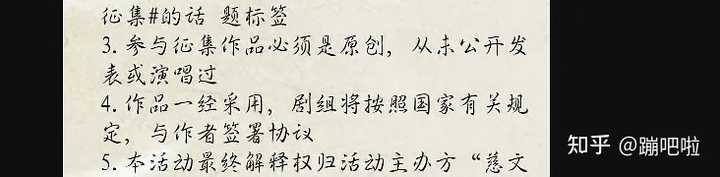 征集#的话 题标签
3. 参与征集作品必须是原创，从未公开发
表或演唱过
4. 作品一经采用，剧组将按照国家有关规
定，与作者签署协议
5. 本活动最终解释权归活动主办方“慈文
知乎 @蹦吧啦